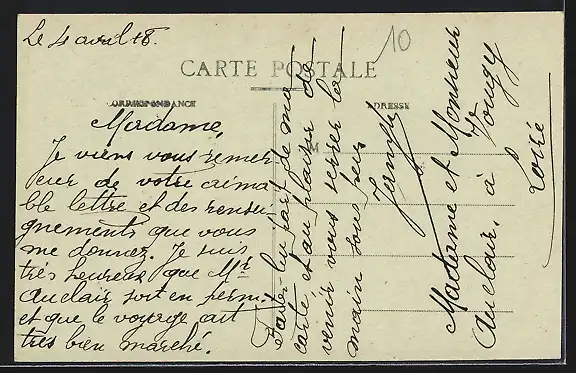 Le 4 avril 18.
10
CARTE POSTALE
CORRESPONDANCE
ADRESSE
Madame,
Je viens vous remer-
cier de votre aima
ble lettre et des rensei
gnements que vous
me donnez. Je suis
très heureux que Mr
Auclair soit en perm.
et que le voyage ait
très bien marché.
Faites lui part de ma
carte et au plaisir de
venir vous serrer la
main sous peu
Madame et Monsieur
Auclair. à Vougy
Loire